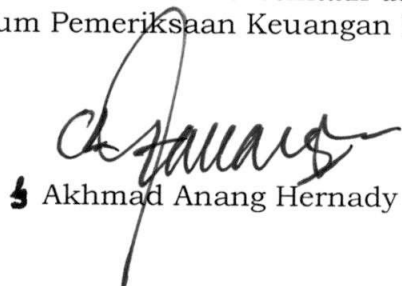 um Pemeriksaan Keuangan
Akhmad Anang Hernady